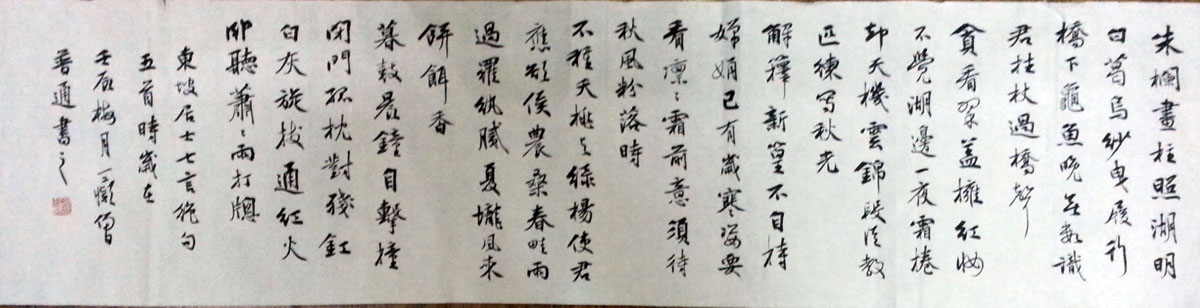 朱欄畫柱照湖明
白葛烏紗曳履行
橋下龜魚晚無數識
君拄杖過橋聲
貪看翠蓋擁紅妝
不覺湖邊一夜霜捲
却天機雲錦段從教
匹練寫秋光
解籜新篁不自持
嬋娟已有歲寒姿要
看凜々霜前意須待
秋風粉落時
不種夭桃與綠楊使君
應欲候農桑春畦雨
過羅紈膩夏壠風來
餅餌香
暮鼓晨鐘自擊撞
閉門孤枕對殘釭
白灰旋撥通紅火
卧聽蕭々雨打牕
東坡居士七言絶句
五首時歲在
壬辰梅月一懶僧
普通書之